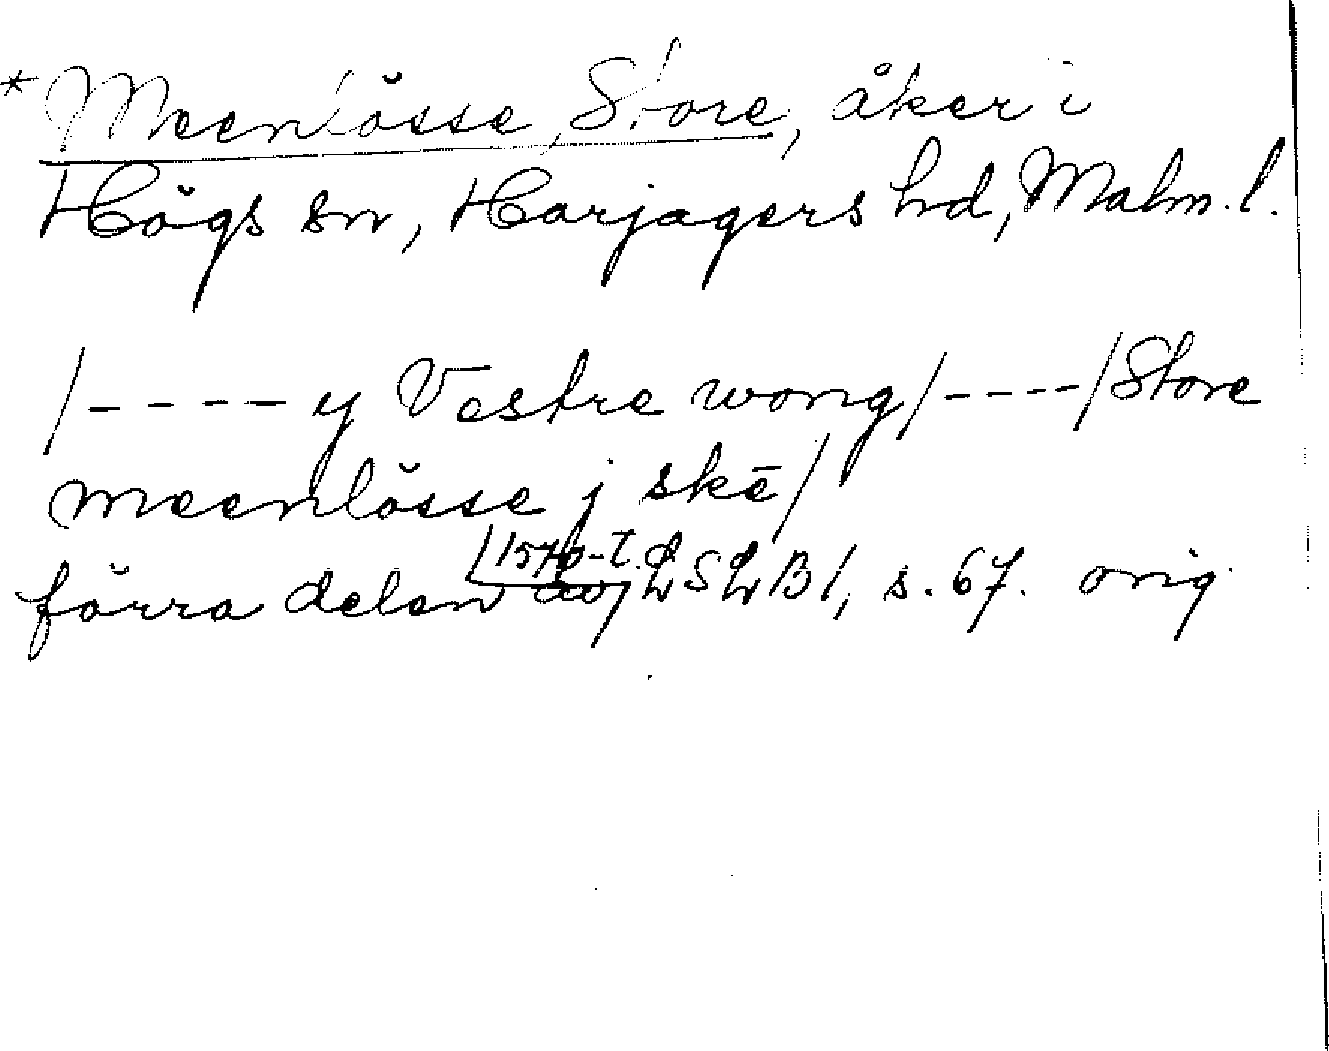 * Meenlösse, Store, åker i
Högs sn, Harjagers hd, Malm. l.
/---- y Vestre wong/----/Store
meenlösse j skē/
förra delen av 1570-t. LSLB 1, s. 67. orig.